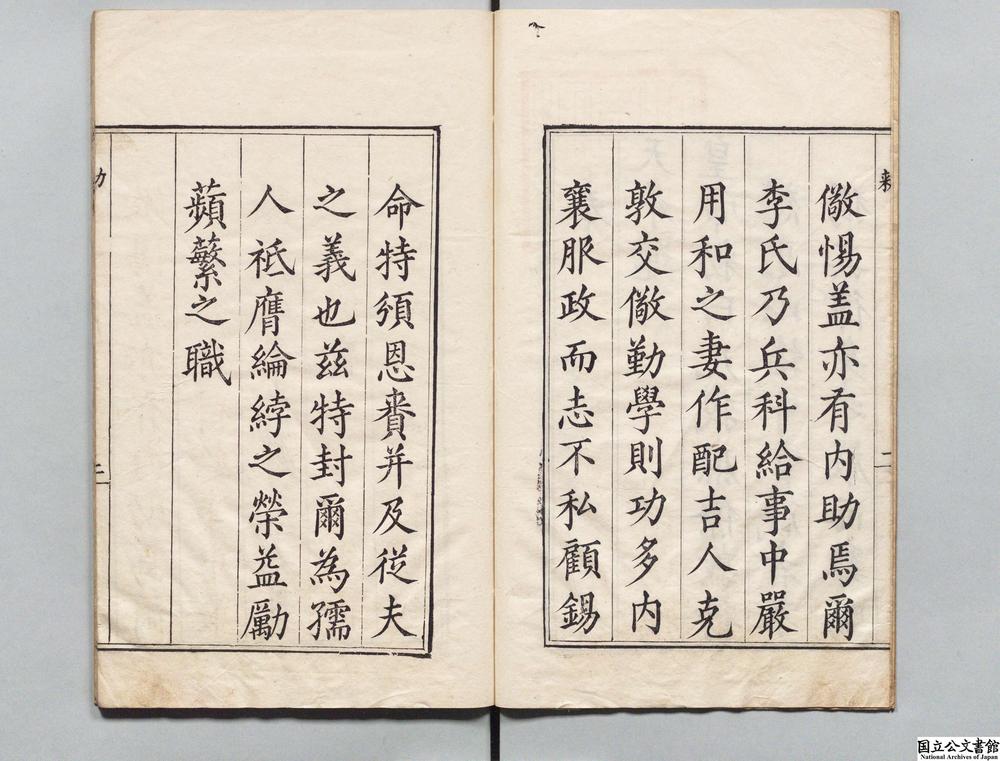 儆惕盖亦有内助焉爾
李氏乃兵科給事中嚴
用和之妻作配吉人克
敦交儆勤學則功多内
襄服政而志不私顧錫
命特頒恩賚并及從夫
之義也茲特封爾為孺
人祗膺綸綍之榮益勵
蘋蘩之職
国立公文書館
National Archives of Japan